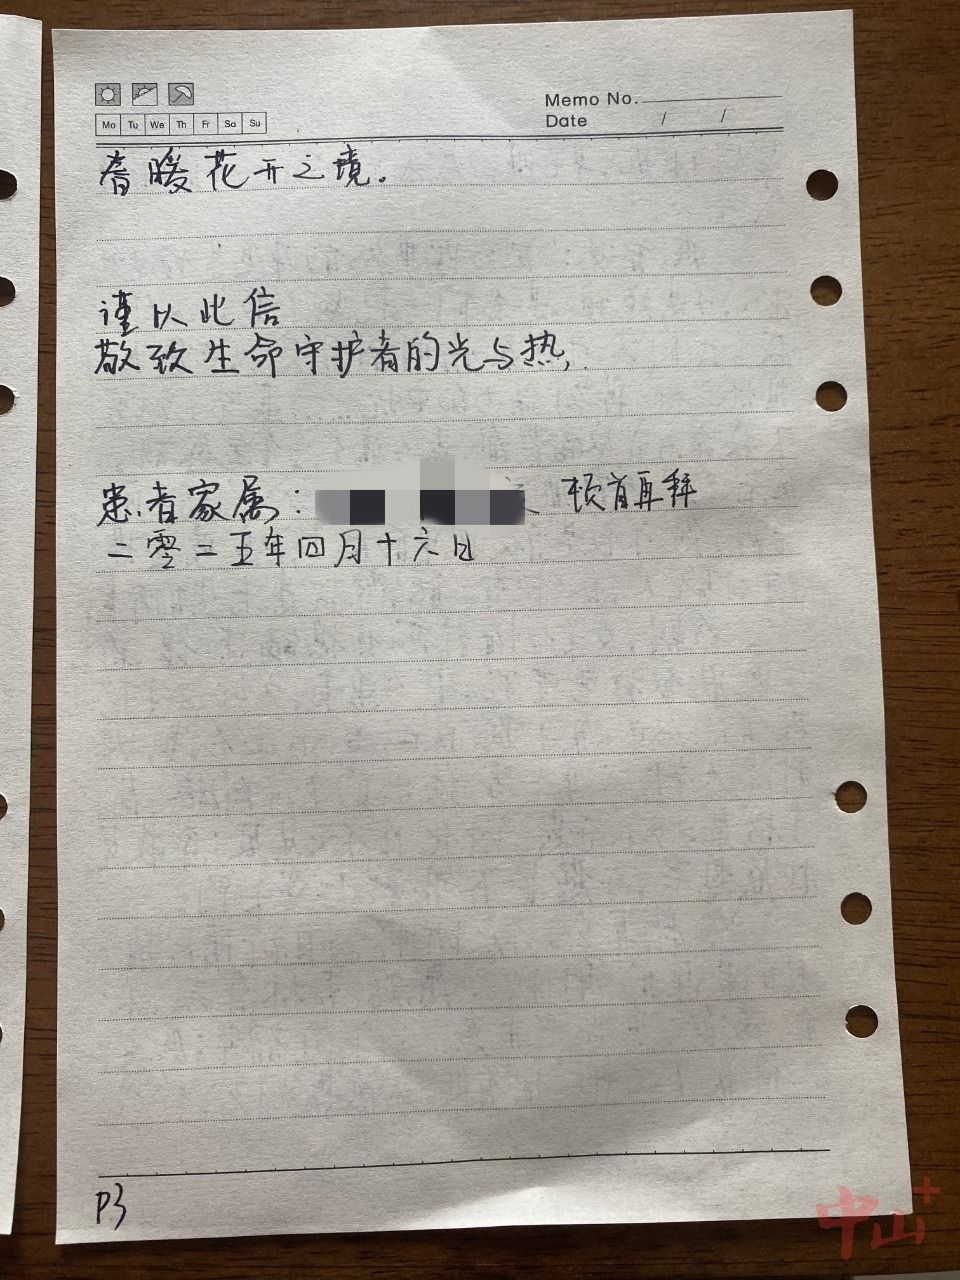 Memo No.
Mo Tu We Th Fr Sa Su
Date / /
春暖花开之境.
谨以此信
敬致生命守护者的光与热,
患者家属: 顿首再拜
二零二五年四月十六日
P3
中山+